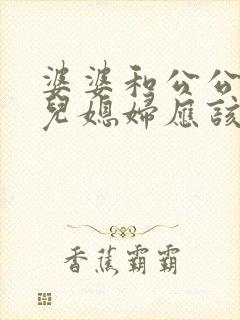 婆婆和公公
兒媳婦應該
香蕉霸霸